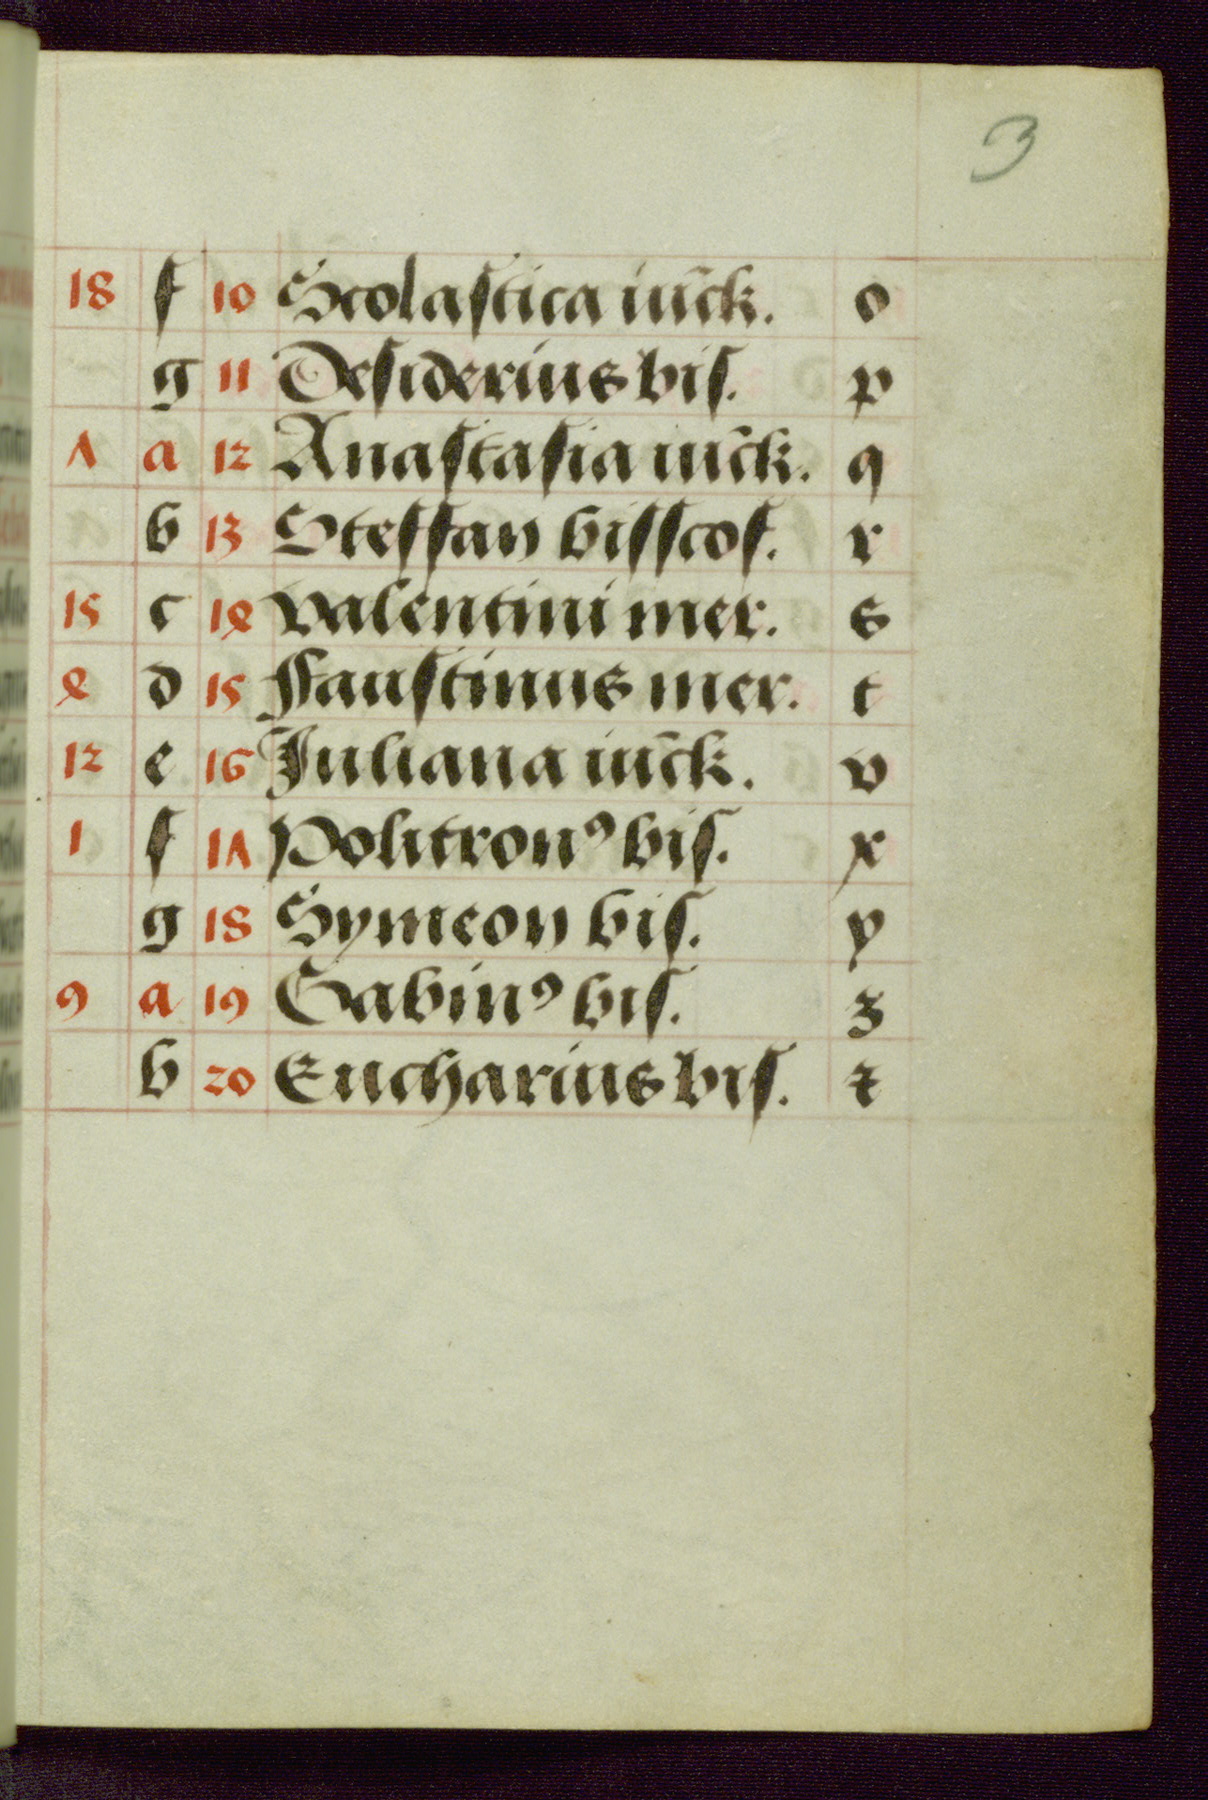 3
18 f 10 Scolastica iūck. o
g 11 Desiderius bis. p
7 a 12 Anastasia iūck. q
b 13 Steffan bisscof. r
15 c 14 valentini mer. s
4 d 15 Faustinus mer. t
12 e 16 Juliana iūck. v
1 f 17 Politronꝯ bis. x
g 18 Symeon bis. y
9 a 19 Gabinꝯ bis. z
b 20 Eucharius bis. ꝛ